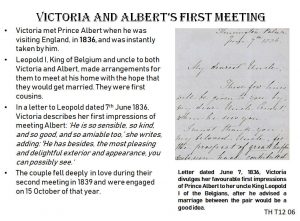 VICTORIA AND ALBERT'S FIRST MEETING
• Victoria met Prince Albert when he was
visiting England, in 1836, and was instantly
taken by him.
• Leopold I, King of Belgium and uncle to both
Victoria and Albert, made arrangements for
them to meet at his home with the hope that
they would get married. They were first
cousins.
• In a letter to Leopold dated 7th June 1836,
Victoria describes her first impressions of
meeting Albert: 'He is so sensible, so kind,
and so good, and so amiable too,' she writes,
adding: 'He has besides, the most pleasing
and delightful exterior and appearance, you
can possibly see.'
• The couple fell deeply in love during their
second meeting in 1839 and were engaged
on 15 October of that year.
My dearest Uncle,
Letter dated June 7, 1836, Victoria
divulges her favourable first impressions
of Prince Albert to her uncle King Leopold
I of the Belgians, after he advised a
marriage between the pair would be a
good idea.
TH T12 06